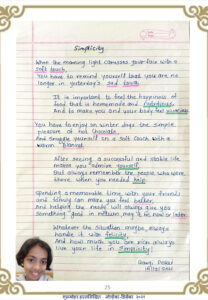 Simplicity
When the morning light caresses your face with a
soft touch,
You have to remind yourself that you are no
longer in yesterday's sad
It is important to feel the happiness of
food that is homemade and
And to make you and your body feel
You have to enjoy on winter days the simple
pleasure of hot chocolate,
And snuggle yourself on a soft couch with a
warm blanket
After seeing a successful and stable life
meant you admire yourself,
But always remember the people who were
there, when you needed help
Spending a memorable time with your friends
and family can make you feel better,
And helping the needy will always give you
something good in return may it be now or later
Whatever the situation maybe, always
handle it with felicity,
And how much you are rich always
live your life in simplicity!
25